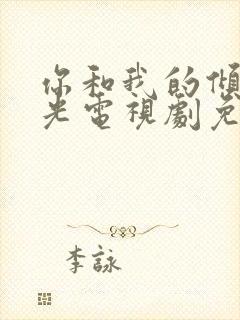 你和我的傾
光電視劇免
李詠